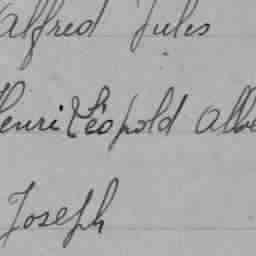 Alfred Jules
Henri Léopold Albe
Joseph